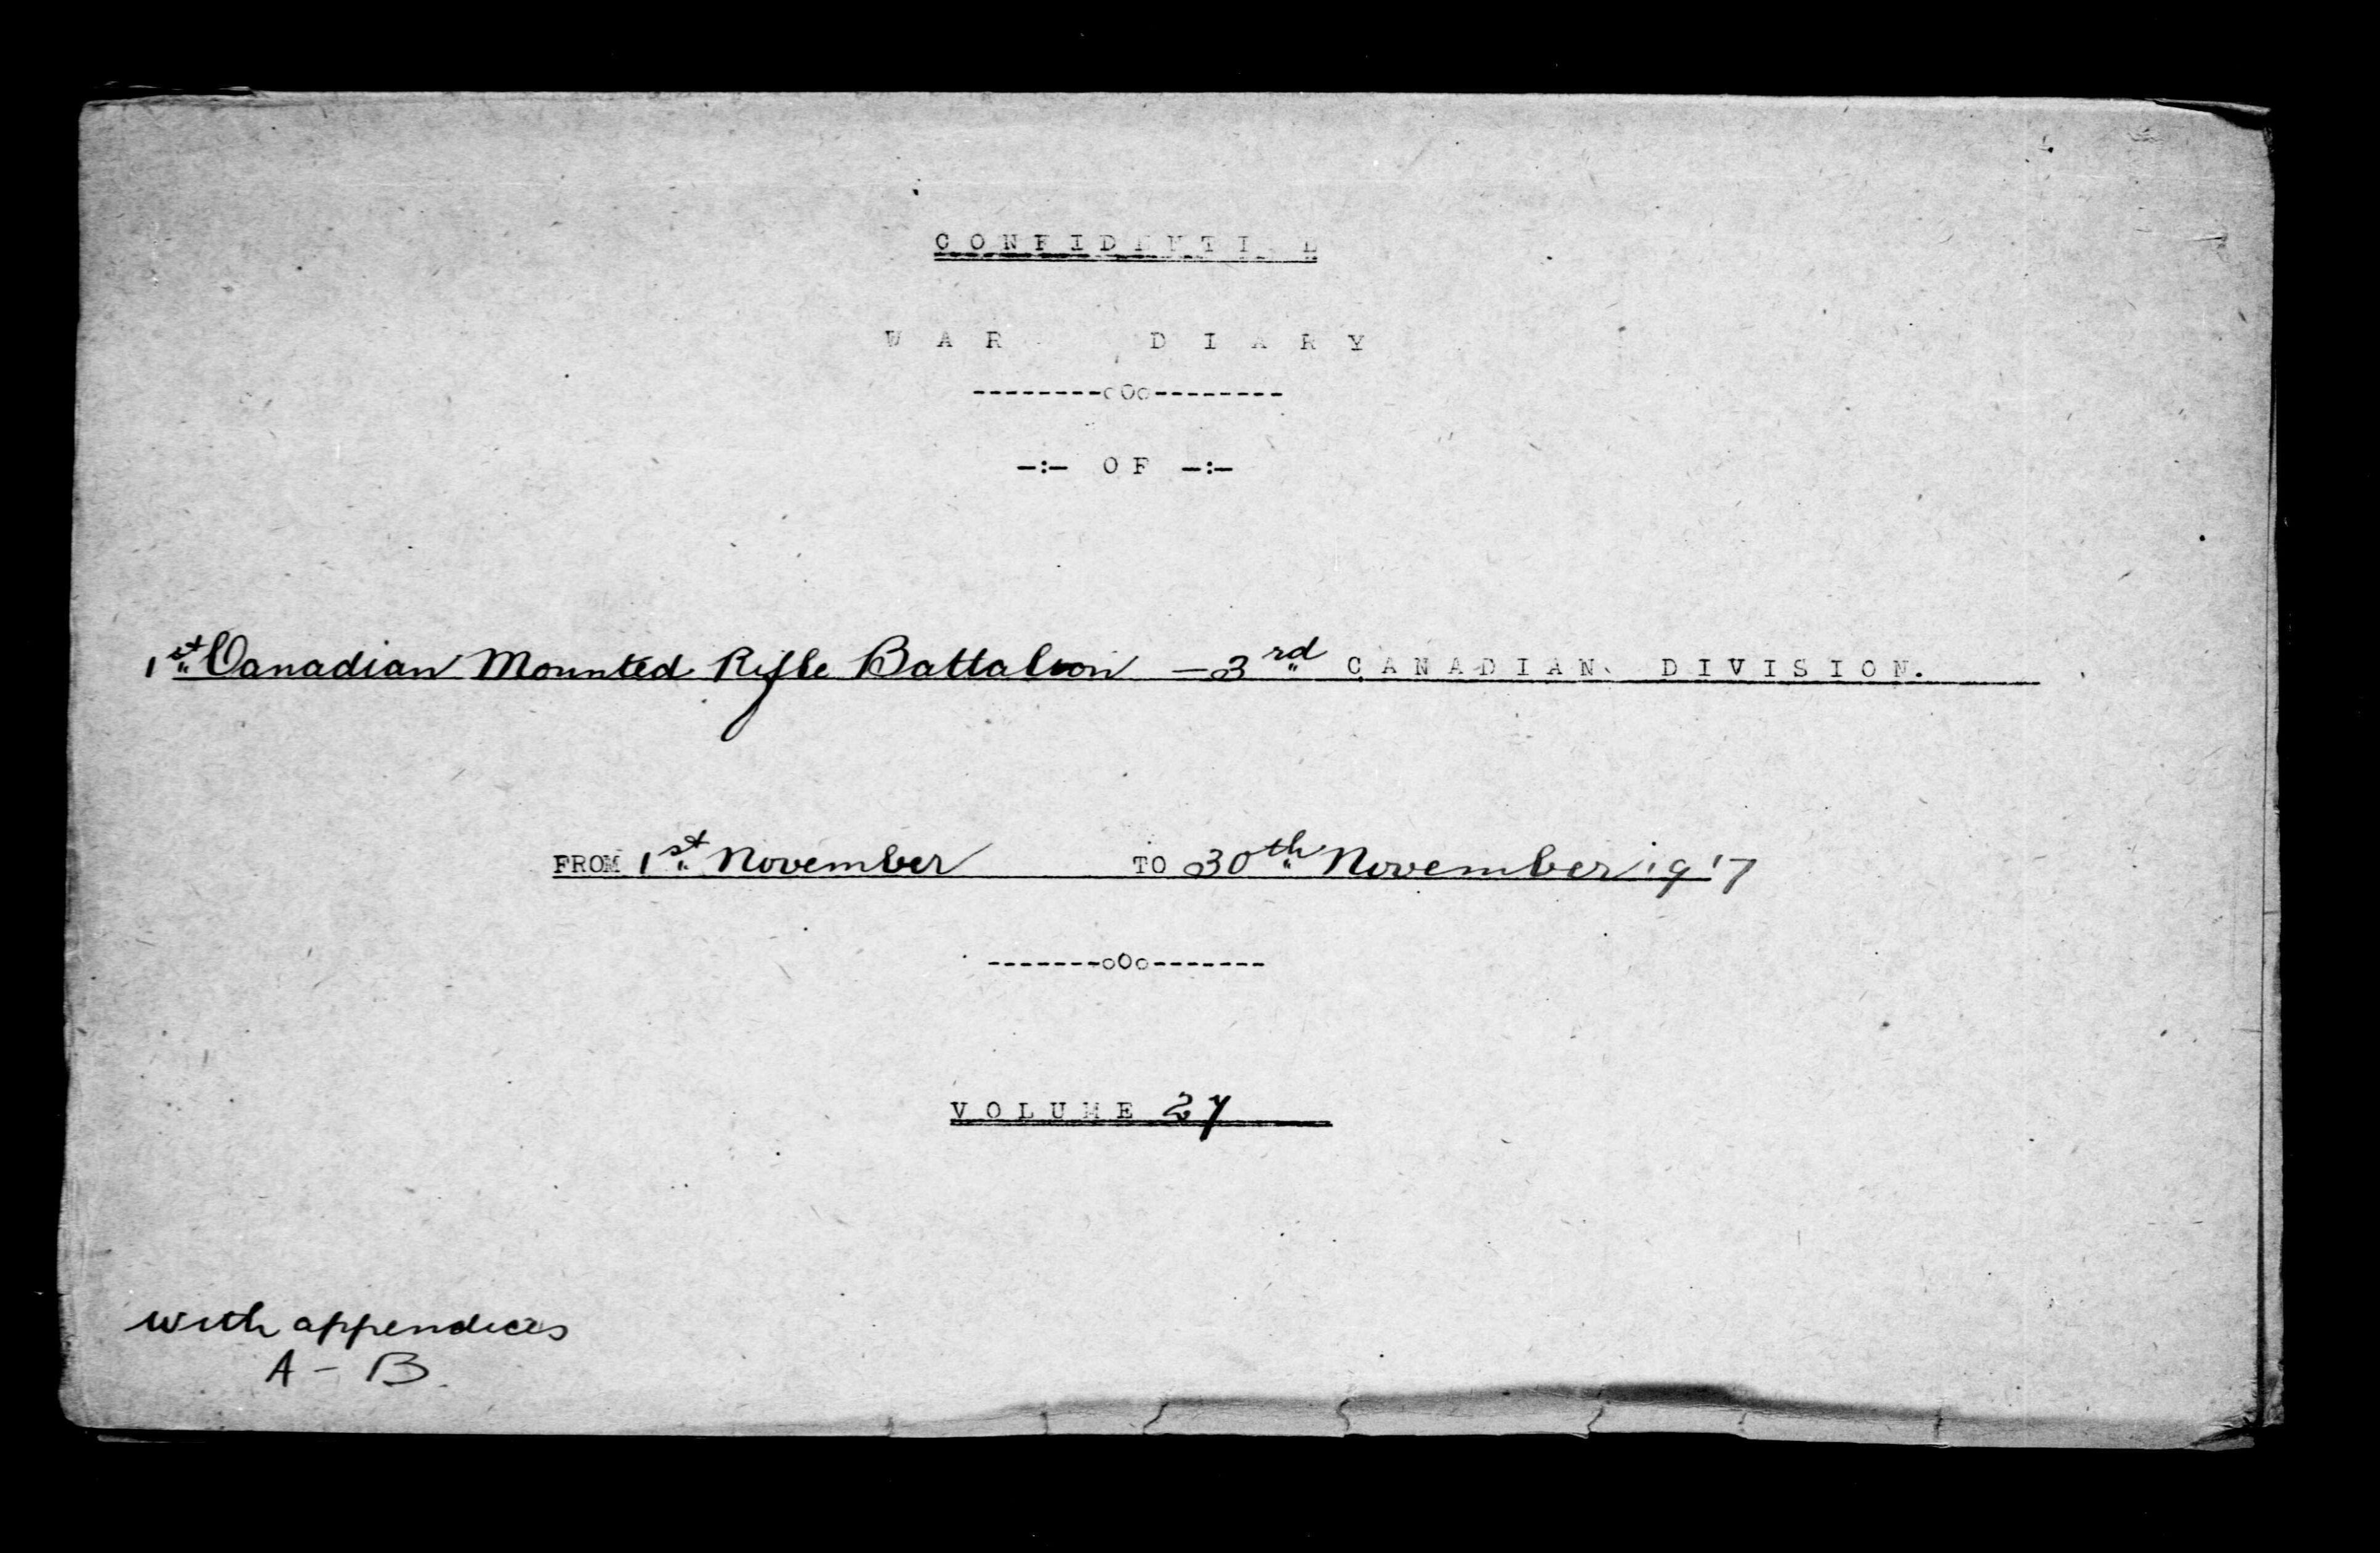 CONFIDENTIAL
WAR DIARY
--------oOo--------
-:- OF -:-
1st Canadian Mounted Rifle Battalion - 3rd CANADIAN DIVISION.
FROM 1st November TO 30th November 1917
-------oOo-------
VOLUME 27
with appendices
A - B.